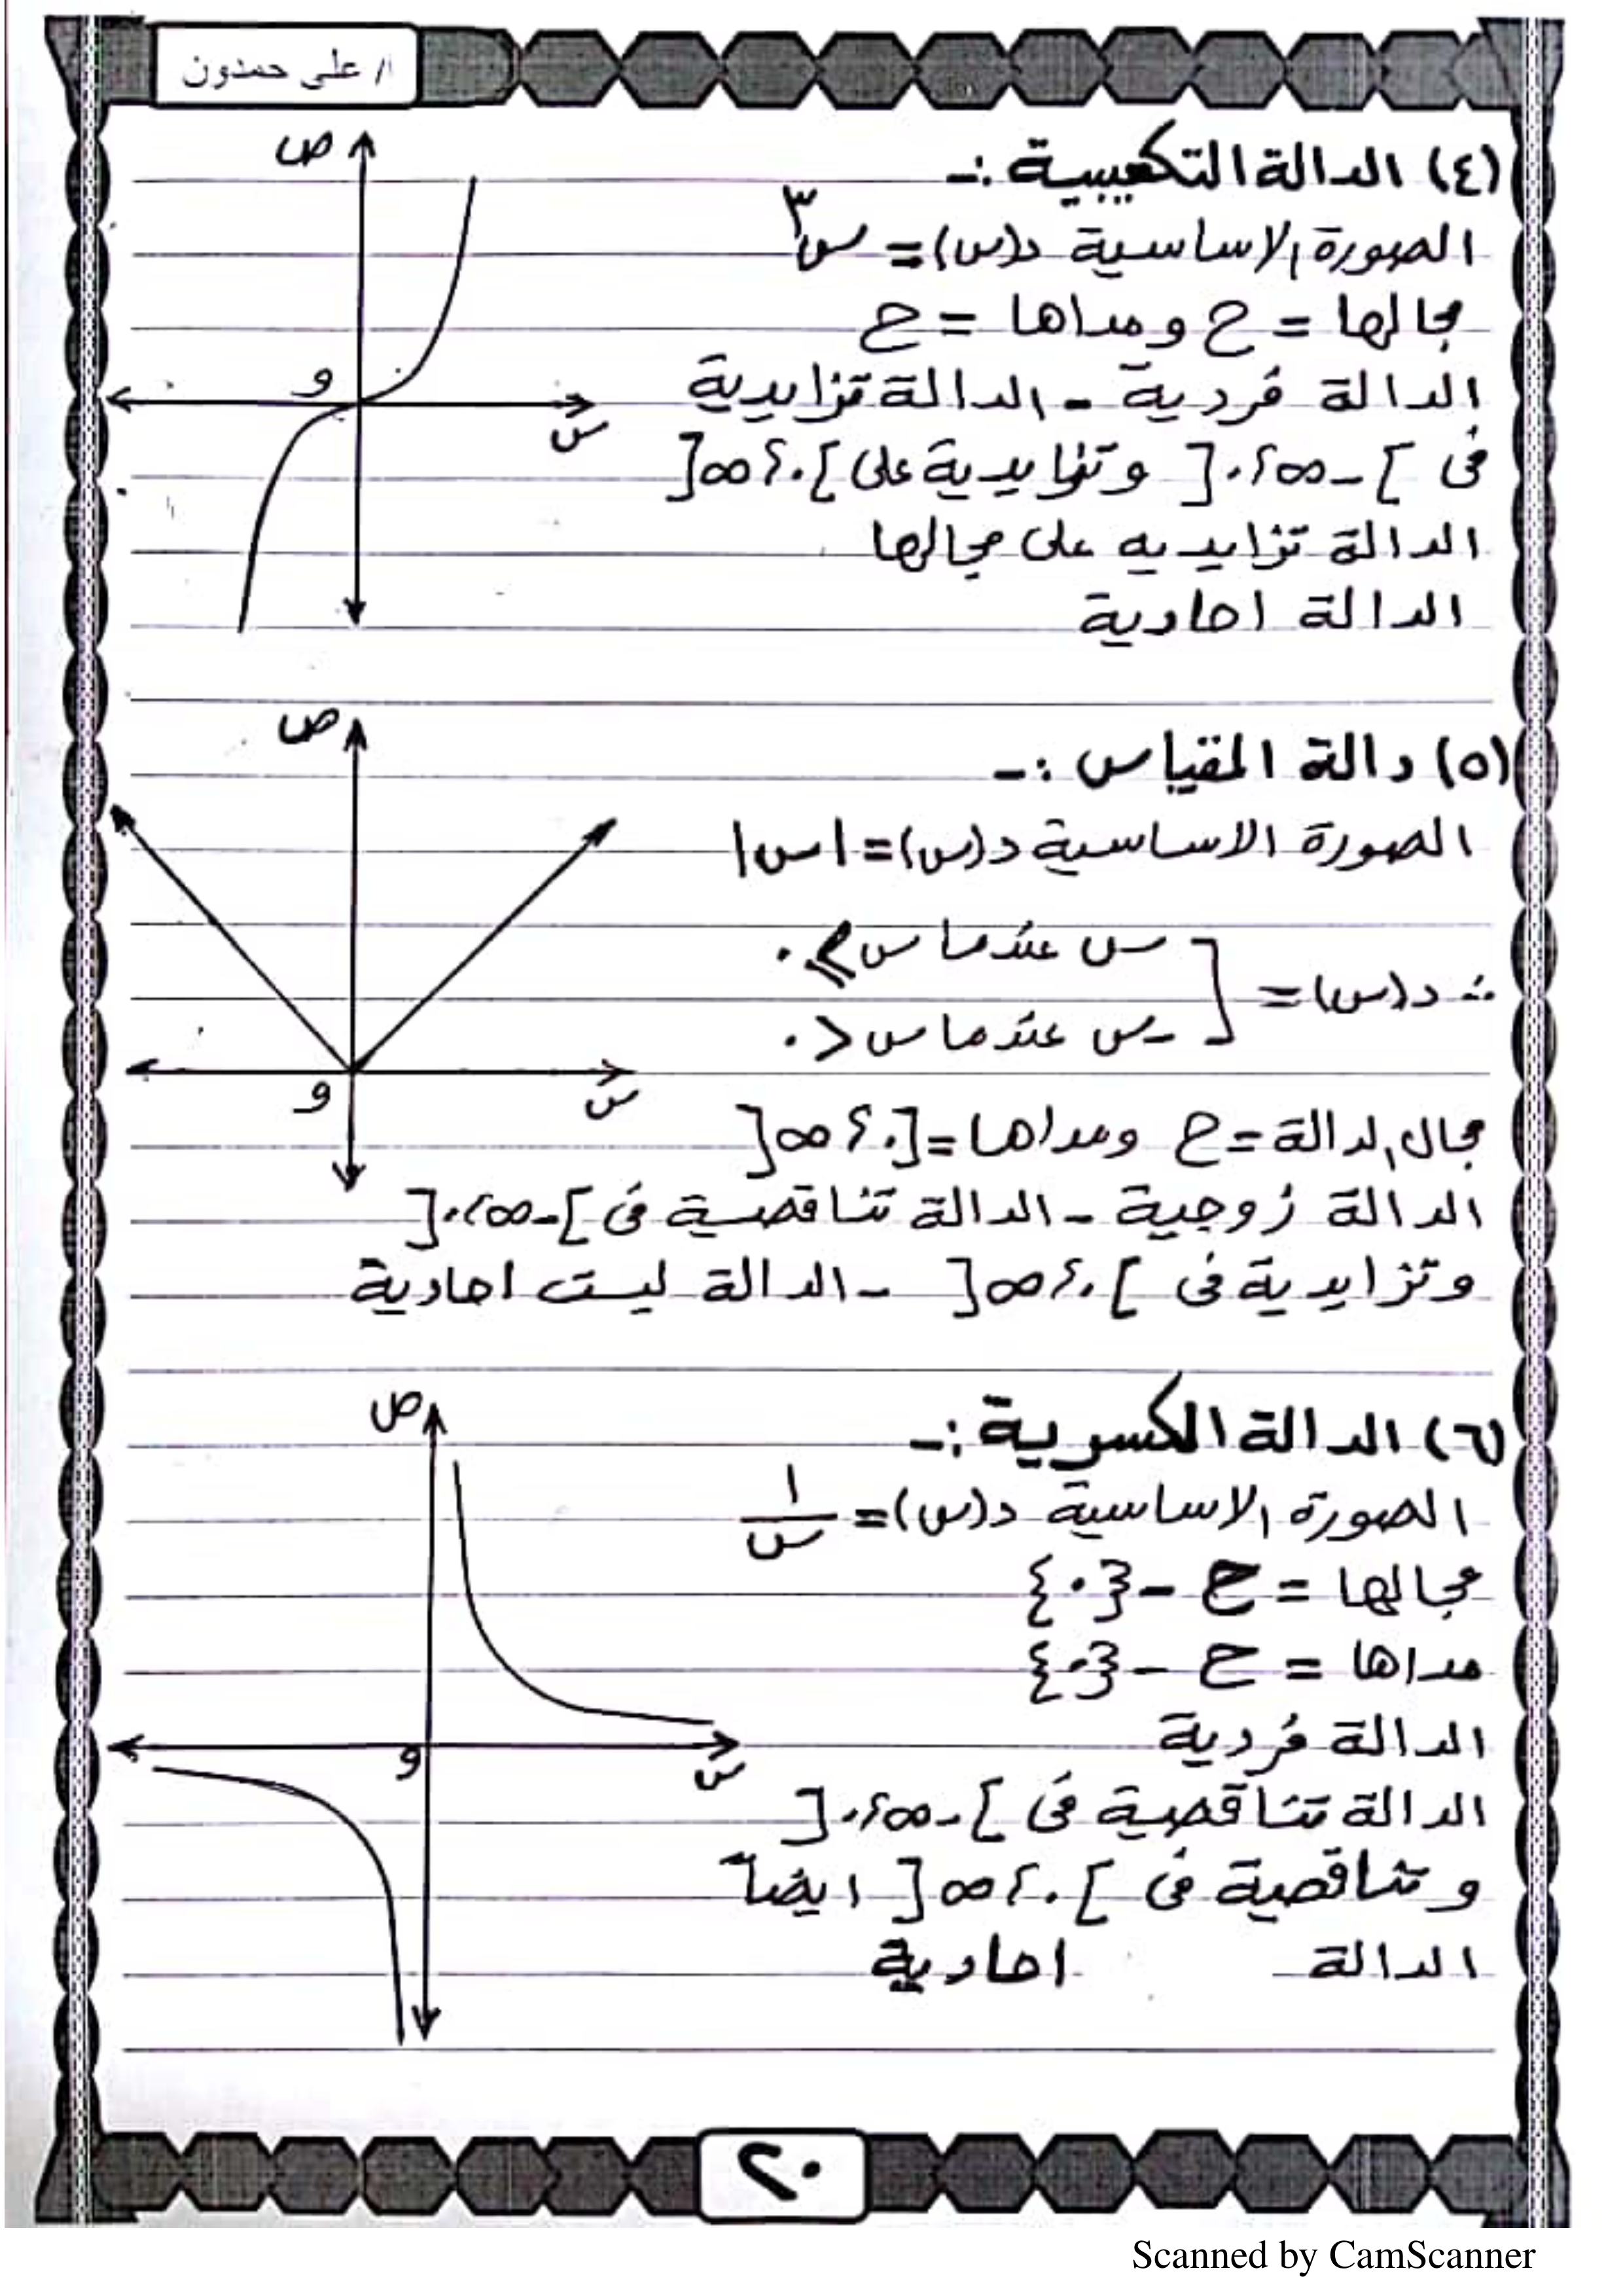 ا/ على حمدون
(٤) الدالة التكعيبية :-
ص
الصورة الاساسية د(س)= س٣
مجالها = ح ومداها = ح
الدالة فردية - الدالة تزايدية
و
س
فى ]-∞،٠[ وتزايدية على ]٠،∞[
الدالة تزايديه على مجالها
الدالة احادية
(٥) دالة المقياس :-
ص
الصورة الاساسية د(س)=|س|
س عندما س ⩾ ٠
∴ د(س)=
-س عندما س < ٠
و
س
مجال الدالة = ح ومداها=[٠،∞[
الدالة زوجية - الدالة تناقصية فى ]-∞،٠[
وتزايدية فى ]٠،∞[ - الدالة ليست احادية
(٦) الدالة الكسرية :-
ص
الصورة الاساسية د(س)= ١/س
مجالها = ح -{٠}
مداها = ح -{٠}
الدالة فردية
و
س
الدالة تناقصية فى ]-∞،٠[
وتناقصية فى ]٠،∞[ ايضاً
الدالة احادية
٢٠
Scanned by CamScanner